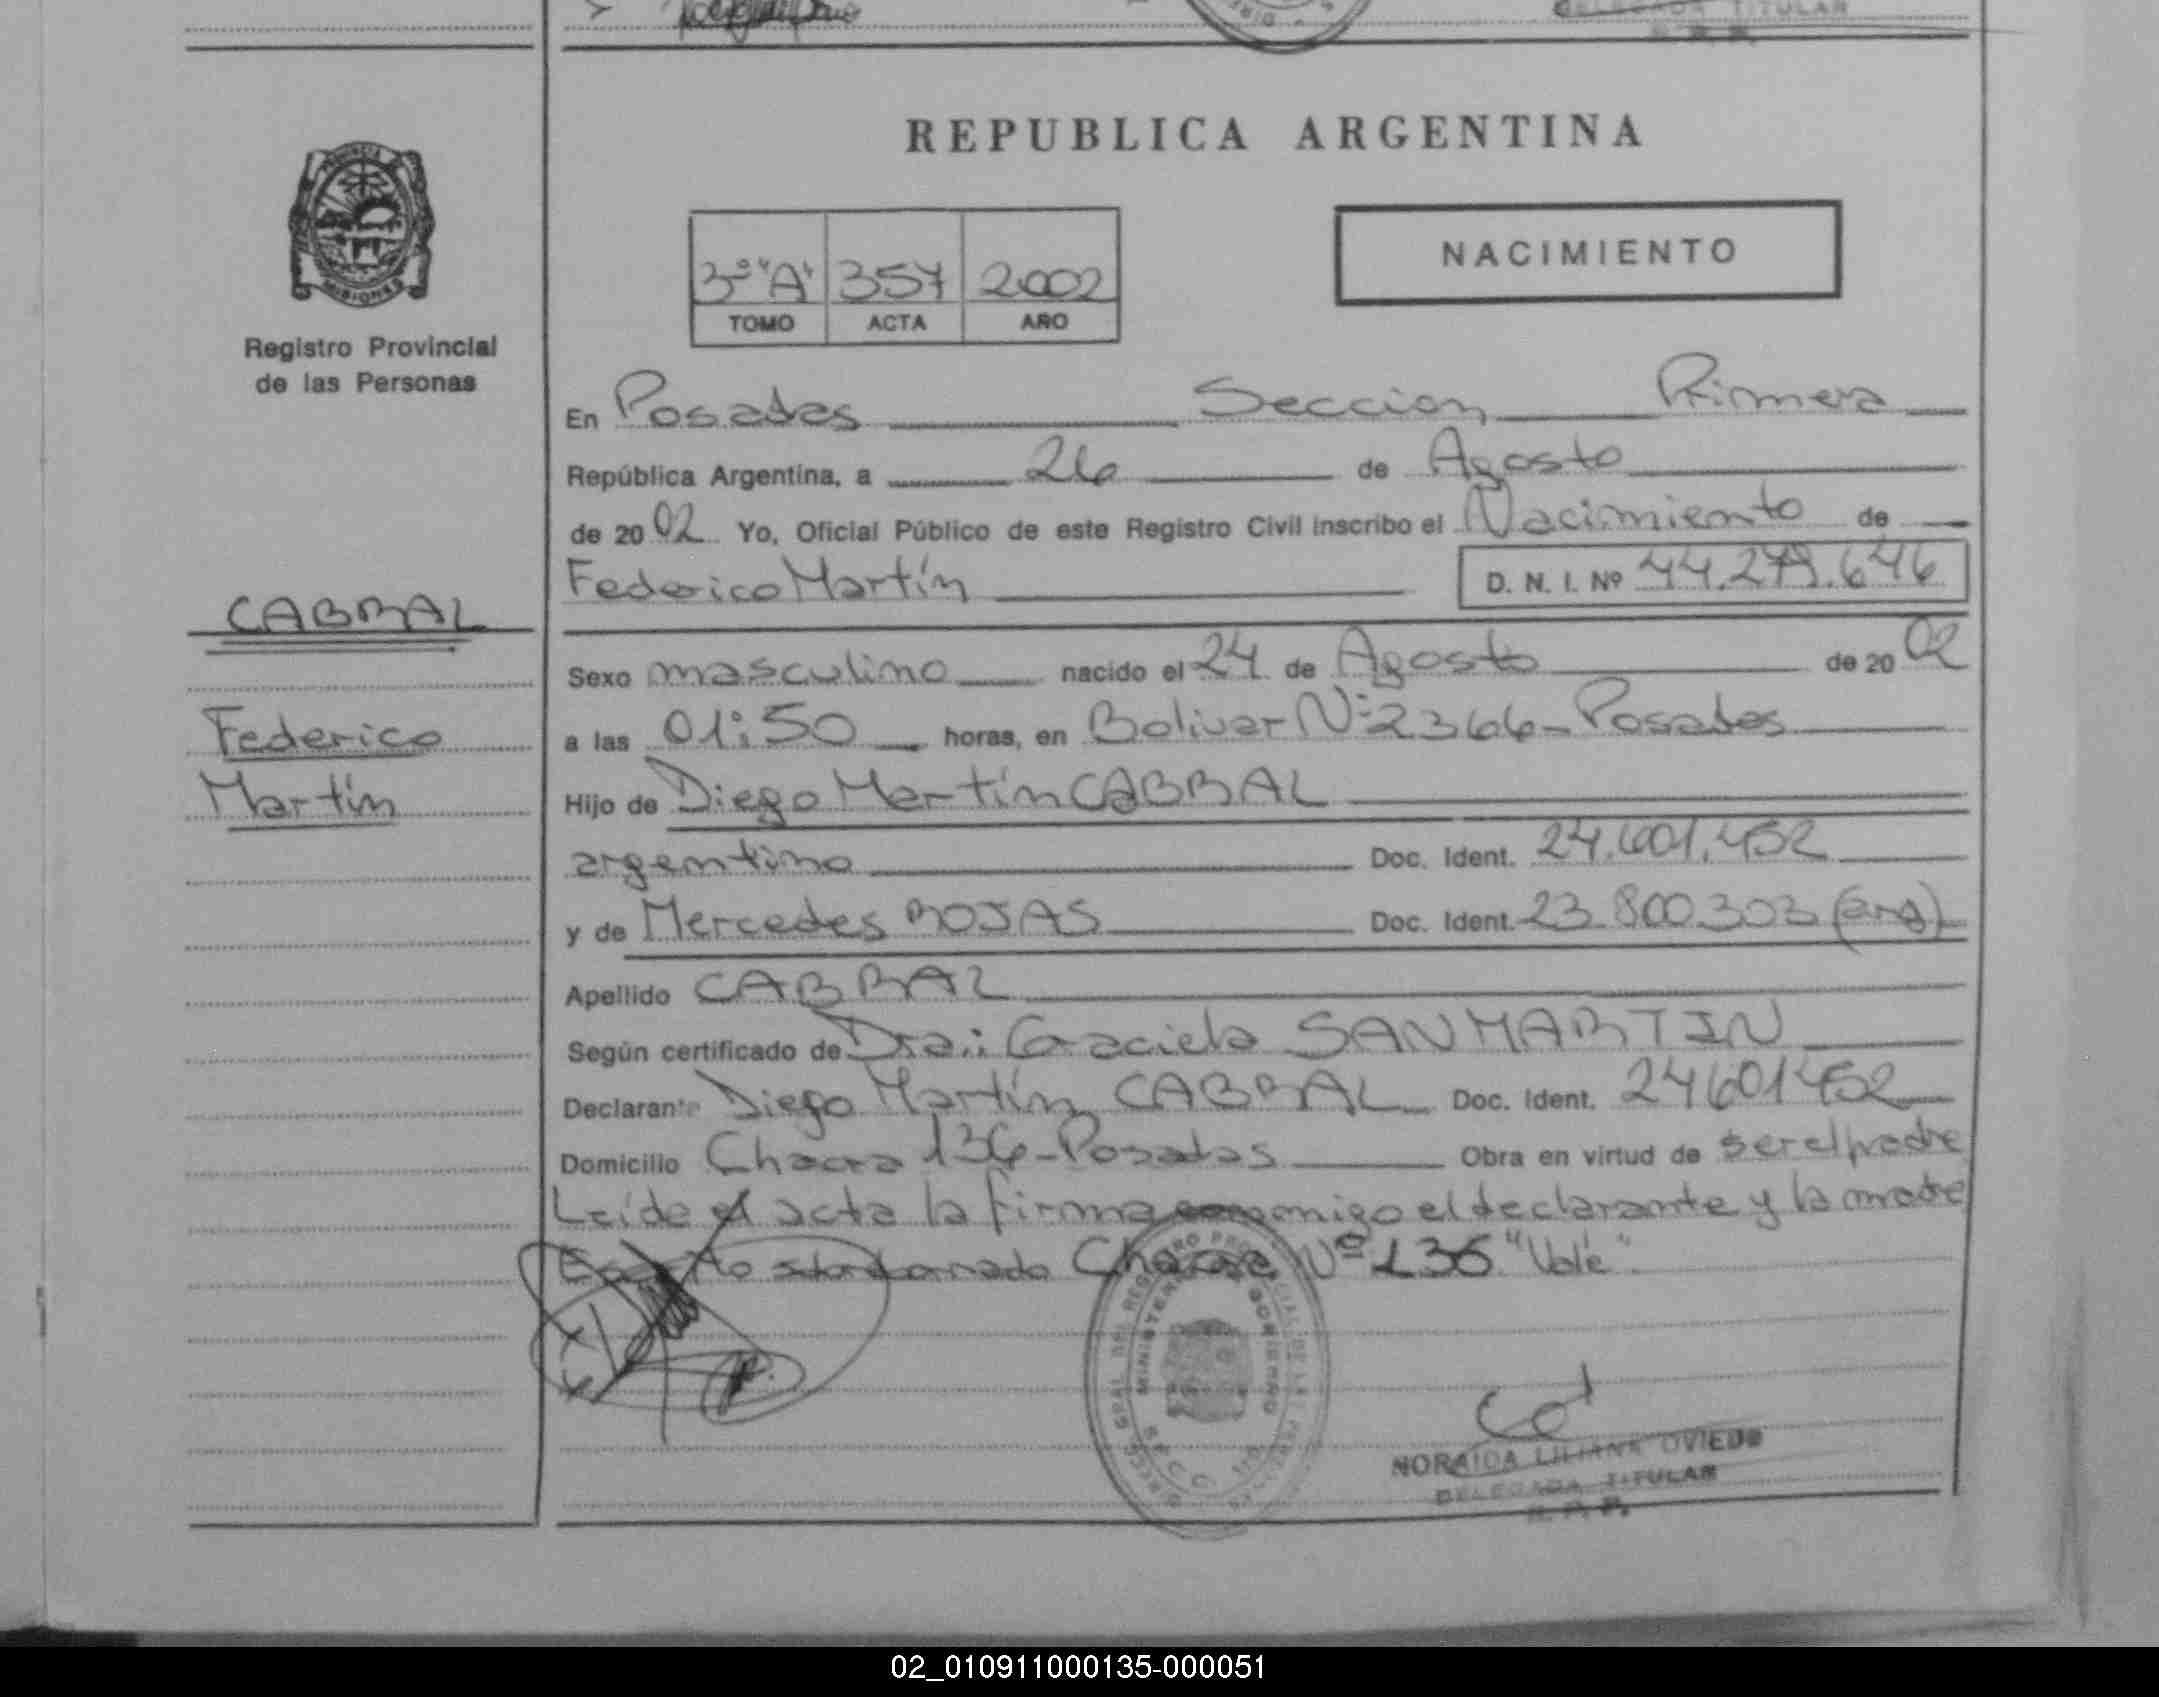 DELEGADA TITULAR
REPUBLICA ARGENTINA
PROVINCIA
MISIONES
Registro Provincial
de las Personas
NACIMIENTO
3º "A" 357 2002
TOMO ACTA AÑO
En Posadas Seccion Primera
República Argentina, a 26 de Agosto
de 2002 Yo, Oficial Público de este Registro Civil inscribo el Nacimiento de
Federico Martín D. N. I. Nº 44.279.646
CABRAL
Federico
Martín
Sexo masculino nacido el 24 de Agosto de 2002
a las 01:50 horas, en Bolivar Nº 2366 - Posadas
Hijo de Diego Martín CABRAL
argentino Doc. Ident. 24.601.452
y de Mercedes ROJAS Doc. Ident. 23.800.303 (arg)
Apellido CABRAL
Según certificado de Dra.: Graciela SAN MARTIN
Declarante Diego Martín CABRAL Doc. Ident. 24601452
Domicilio Chacra 136 - Posadas Obra en virtud de ser el padre
Leída el acta la firma conmigo el declarante y la madre
Chacra Nº 136 "Vale".
MINISTERIO GOBIERNO
SECC. 1ra
NORAIDA LILIANA OVIEDO
DELEGADA TITULAR
R. P. P.
02_010911000135-000051